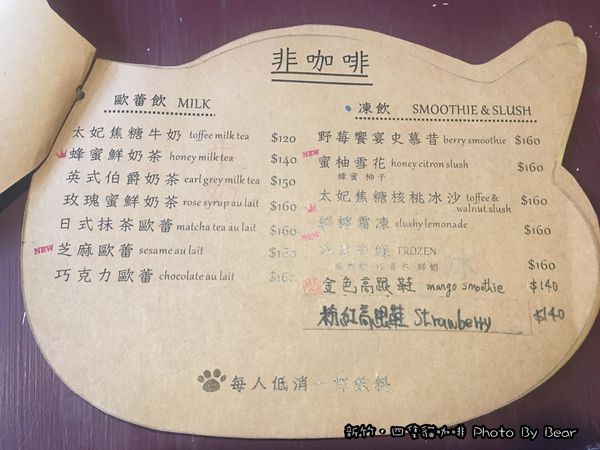 非咖啡
歐蕾飲 MILK
太妃焦糖牛奶 toffee milk tea $120
蜂蜜鮮奶茶 honey milk tea $140
英式伯爵奶茶 earl grey milk tea $150
玫瑰蜜鮮奶茶 rose syrup au lait $160
日式抹茶歐蕾 matcha tea au lait $160
NEW 芝麻歐蕾 sesame au lait $160
巧克力歐蕾 chocolate au lait $160
凍飲 SMOOTHIE & SLUSH
野莓饗宴史慕昔 berry smoothie $160
NEW 蜜柚雪花 honey citron slush $160
蜂蜜 柚子
太妃焦糖核桃冰沙 toffee &
walnut slush $160
鮮檸霜凍 slushy lemonade $160
NEW FROZEN
鮮奶 $160
金色高跟鞋 mango smoothie $140
粉紅高跟鞋 Strawberry $140
每人低消一杯飲料
新竹・四隻貓咖啡 Photo By Bear